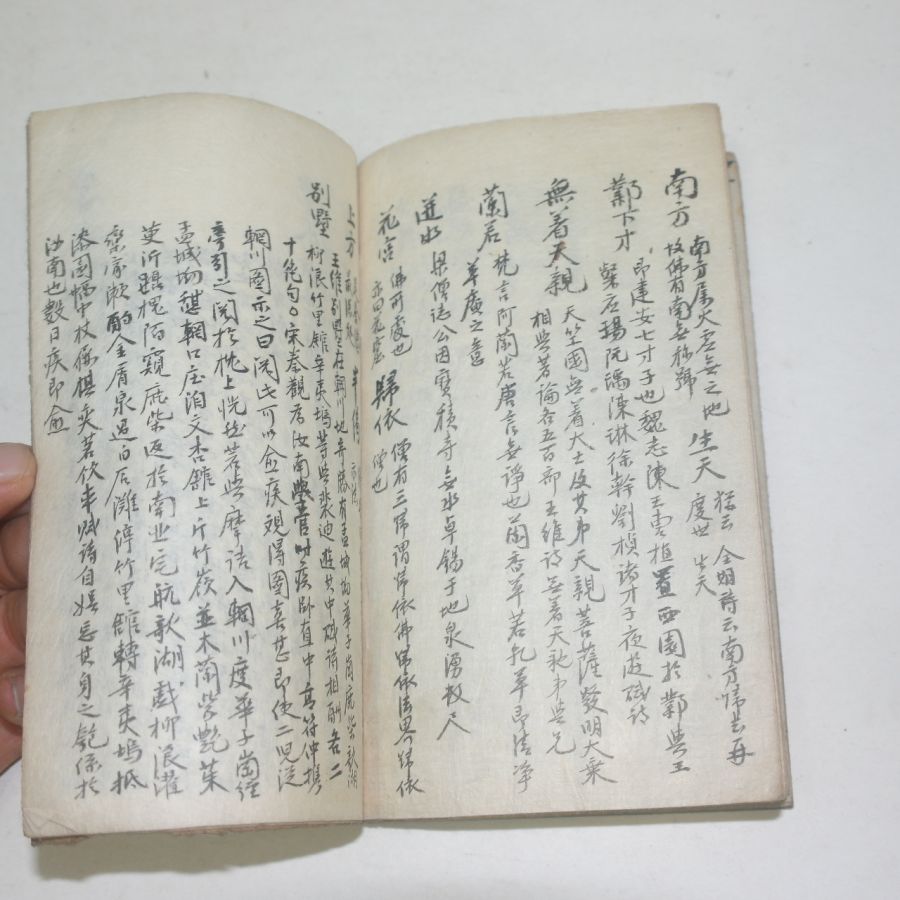 南方 南方屬火虛無之地 生天 猶云 金明詩云南方歸去再
故佛有南無稱號 度世 生天
鄴下才 即建安七才子也魏志陳王雲植置西園於鄴與王
粲應瑒阮瑀陳琳徐幹劉楨諸才子夜遊賦詩
無着天親 天竺國無着大士及其弟天親菩薩發明大乗
相與著論各五百部王維詩無着天親弟與兄
蘭若 梵言阿蘭若唐言無諍也蘭香草若乾草即清净
草廣之意
迸水 梁僧誌公因寶積寺無水卓錫于地泉湧數尺
花宮 佛所處也 歸依 僧有三帰謂帰依佛帰依法界歸依
亦曰花窟 僧也
上方
別墅 王維別墅在輞川地奇勝有孟城坳華子崗鹿柴
柳浪竹里館辛夷塢等與裴迪遊其中賦詩相酬各二
十絶句○宋秦觀為汝南學官時疾卧直中高符仲携
輞川圖示之曰閱此可以愈疾観得圖喜甚即使二児従
旁引之閱於枕上恍然若與摩詰入輞川度華子崗經
孟城坳憩輞口庄泊文杏館上斤竹嶺並木蘭柴艶茱
萸沜躡槐陌窺鹿柴返於南北宅航欹湖戲柳浪濯
欒家瀬酌金屑泉過白石灘停竹里館轉辛夷塢抵
漆園幅巾杖屨棋奕茗飲來賦詩自娯忘其身之匏係於
汝南也數日疾即愈